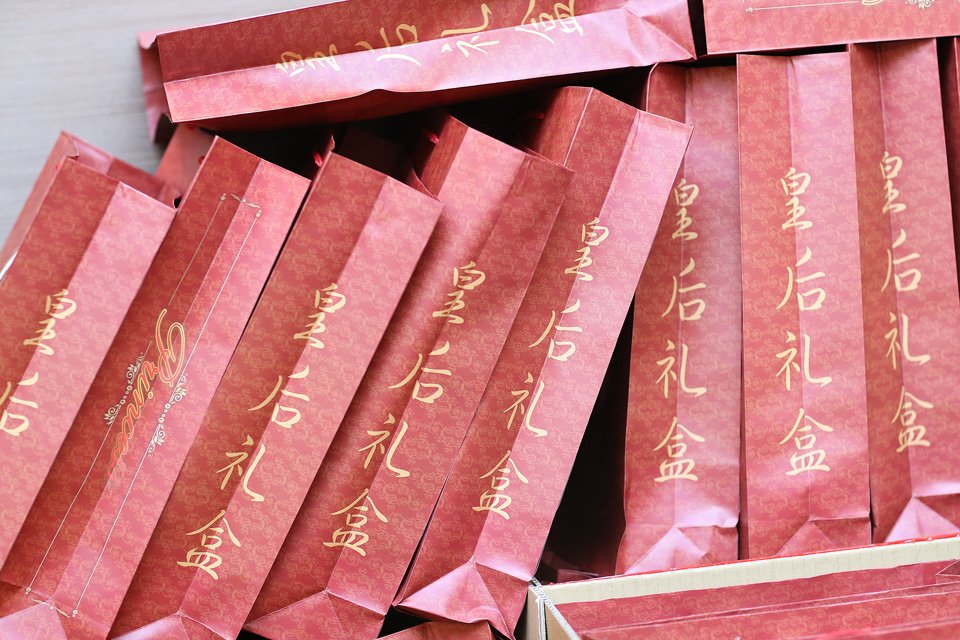 皇后礼盒
皇后
皇后礼盒
皇后礼盒
皇后礼盒
皇后礼盒
皇后礼盒
皇后礼盒